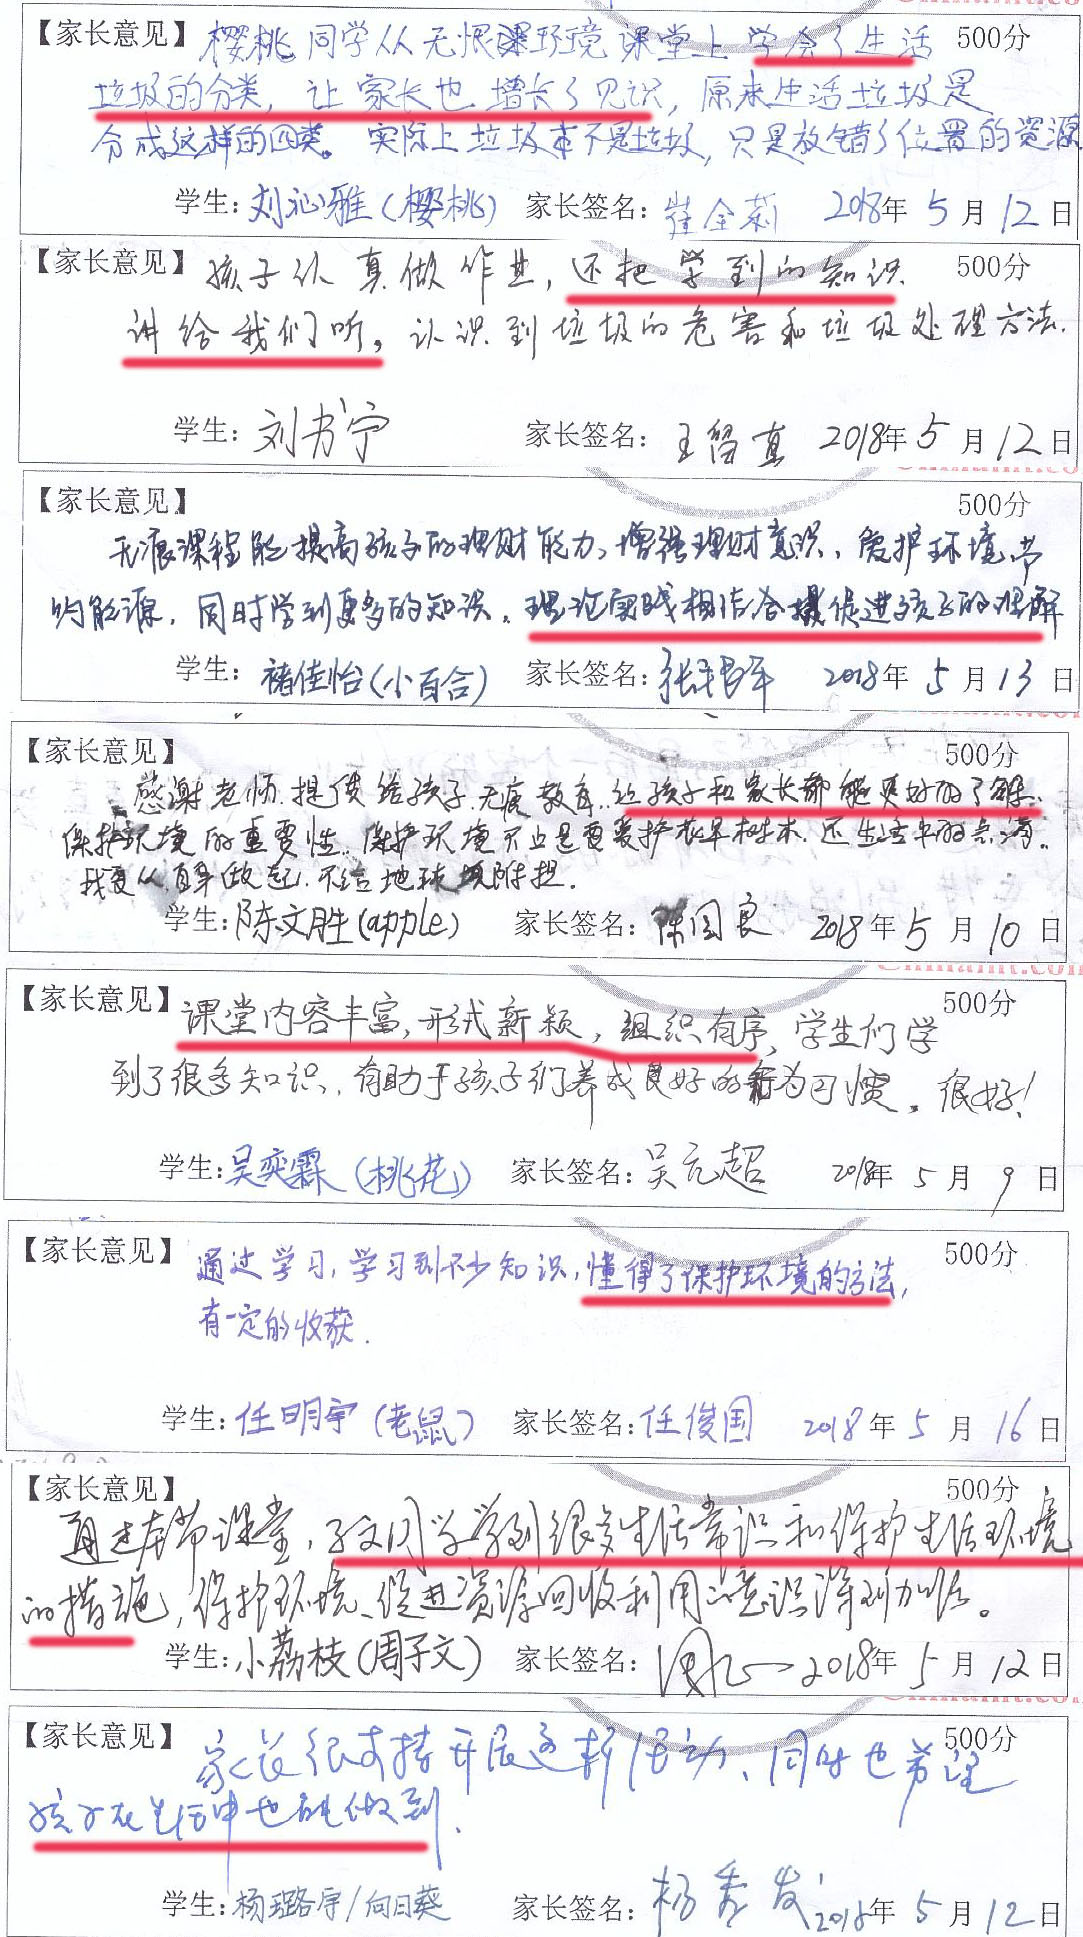 【家长意见】樱桃同学从无恨课环境课堂上学会了生活 500分
垃圾的分类，让家长也增长了见识，原来生活垃圾是
分成这样的四类。实际上垃圾本不是垃圾，只是放错了位置的资源
学生：刘沁雅（樱桃） 家长签名：崔金莉 2018年5月12日
【家长意见】孩子认真做作业，还把学到的知识 500分
讲给我们听。认识到垃圾的危害和垃圾处理方法.
学生：刘书宁 家长签名：王留真 2018年5月12日
【家长意见】 500分
无痕课程能提高孩子的理财能力、增强理财意识、爱护环境、节
约能源，同时学到更多的知识。理论实践相结合 促进孩子的理解
学生：褚佳怡（小百合） 家长签名： 2018年5月13日
【家长意见】 500分
感谢老师.提供给孩子.无痕教育.让孩子和家长都能更好的了解.
保护环境的重要性.保护环境不止是要爱护花草树木.还生活中的点滴.
我要从自身做起.不给地球 .
学生：陈文胜（apple） 家长签名：陈国良 2018年5月10日
【家长意见】课堂内容丰富，形式新颖，组织有序，学生们学 500分
到了很多知识，有助于孩子们养成良好的行为习惯。很好！
学生：吴奕霖（桃花） 家长签名：吴元超 2018年5月9日
【家长意见】通过学习，学习到不少知识，懂得了保护环境的方法， 500分
有一定的收获.
学生：任明宇（老鼠） 家长签名：任俊国 2018年5月16日
【家长意见】 500分
通过本节课堂，子文同学学到很多生活常识和保护生活环境
的措施，保护环境、促进资源回收利用的意识得到加强。
学生：小荔枝（周子文） 家长签名： 2018年5月12日
【家长意见】家长很支持开展这新活动、同时也希望 500分
孩子在生活中也能做到.
学生：杨璐宇/向日葵 家长签名：杨秀发 2018年5月12日